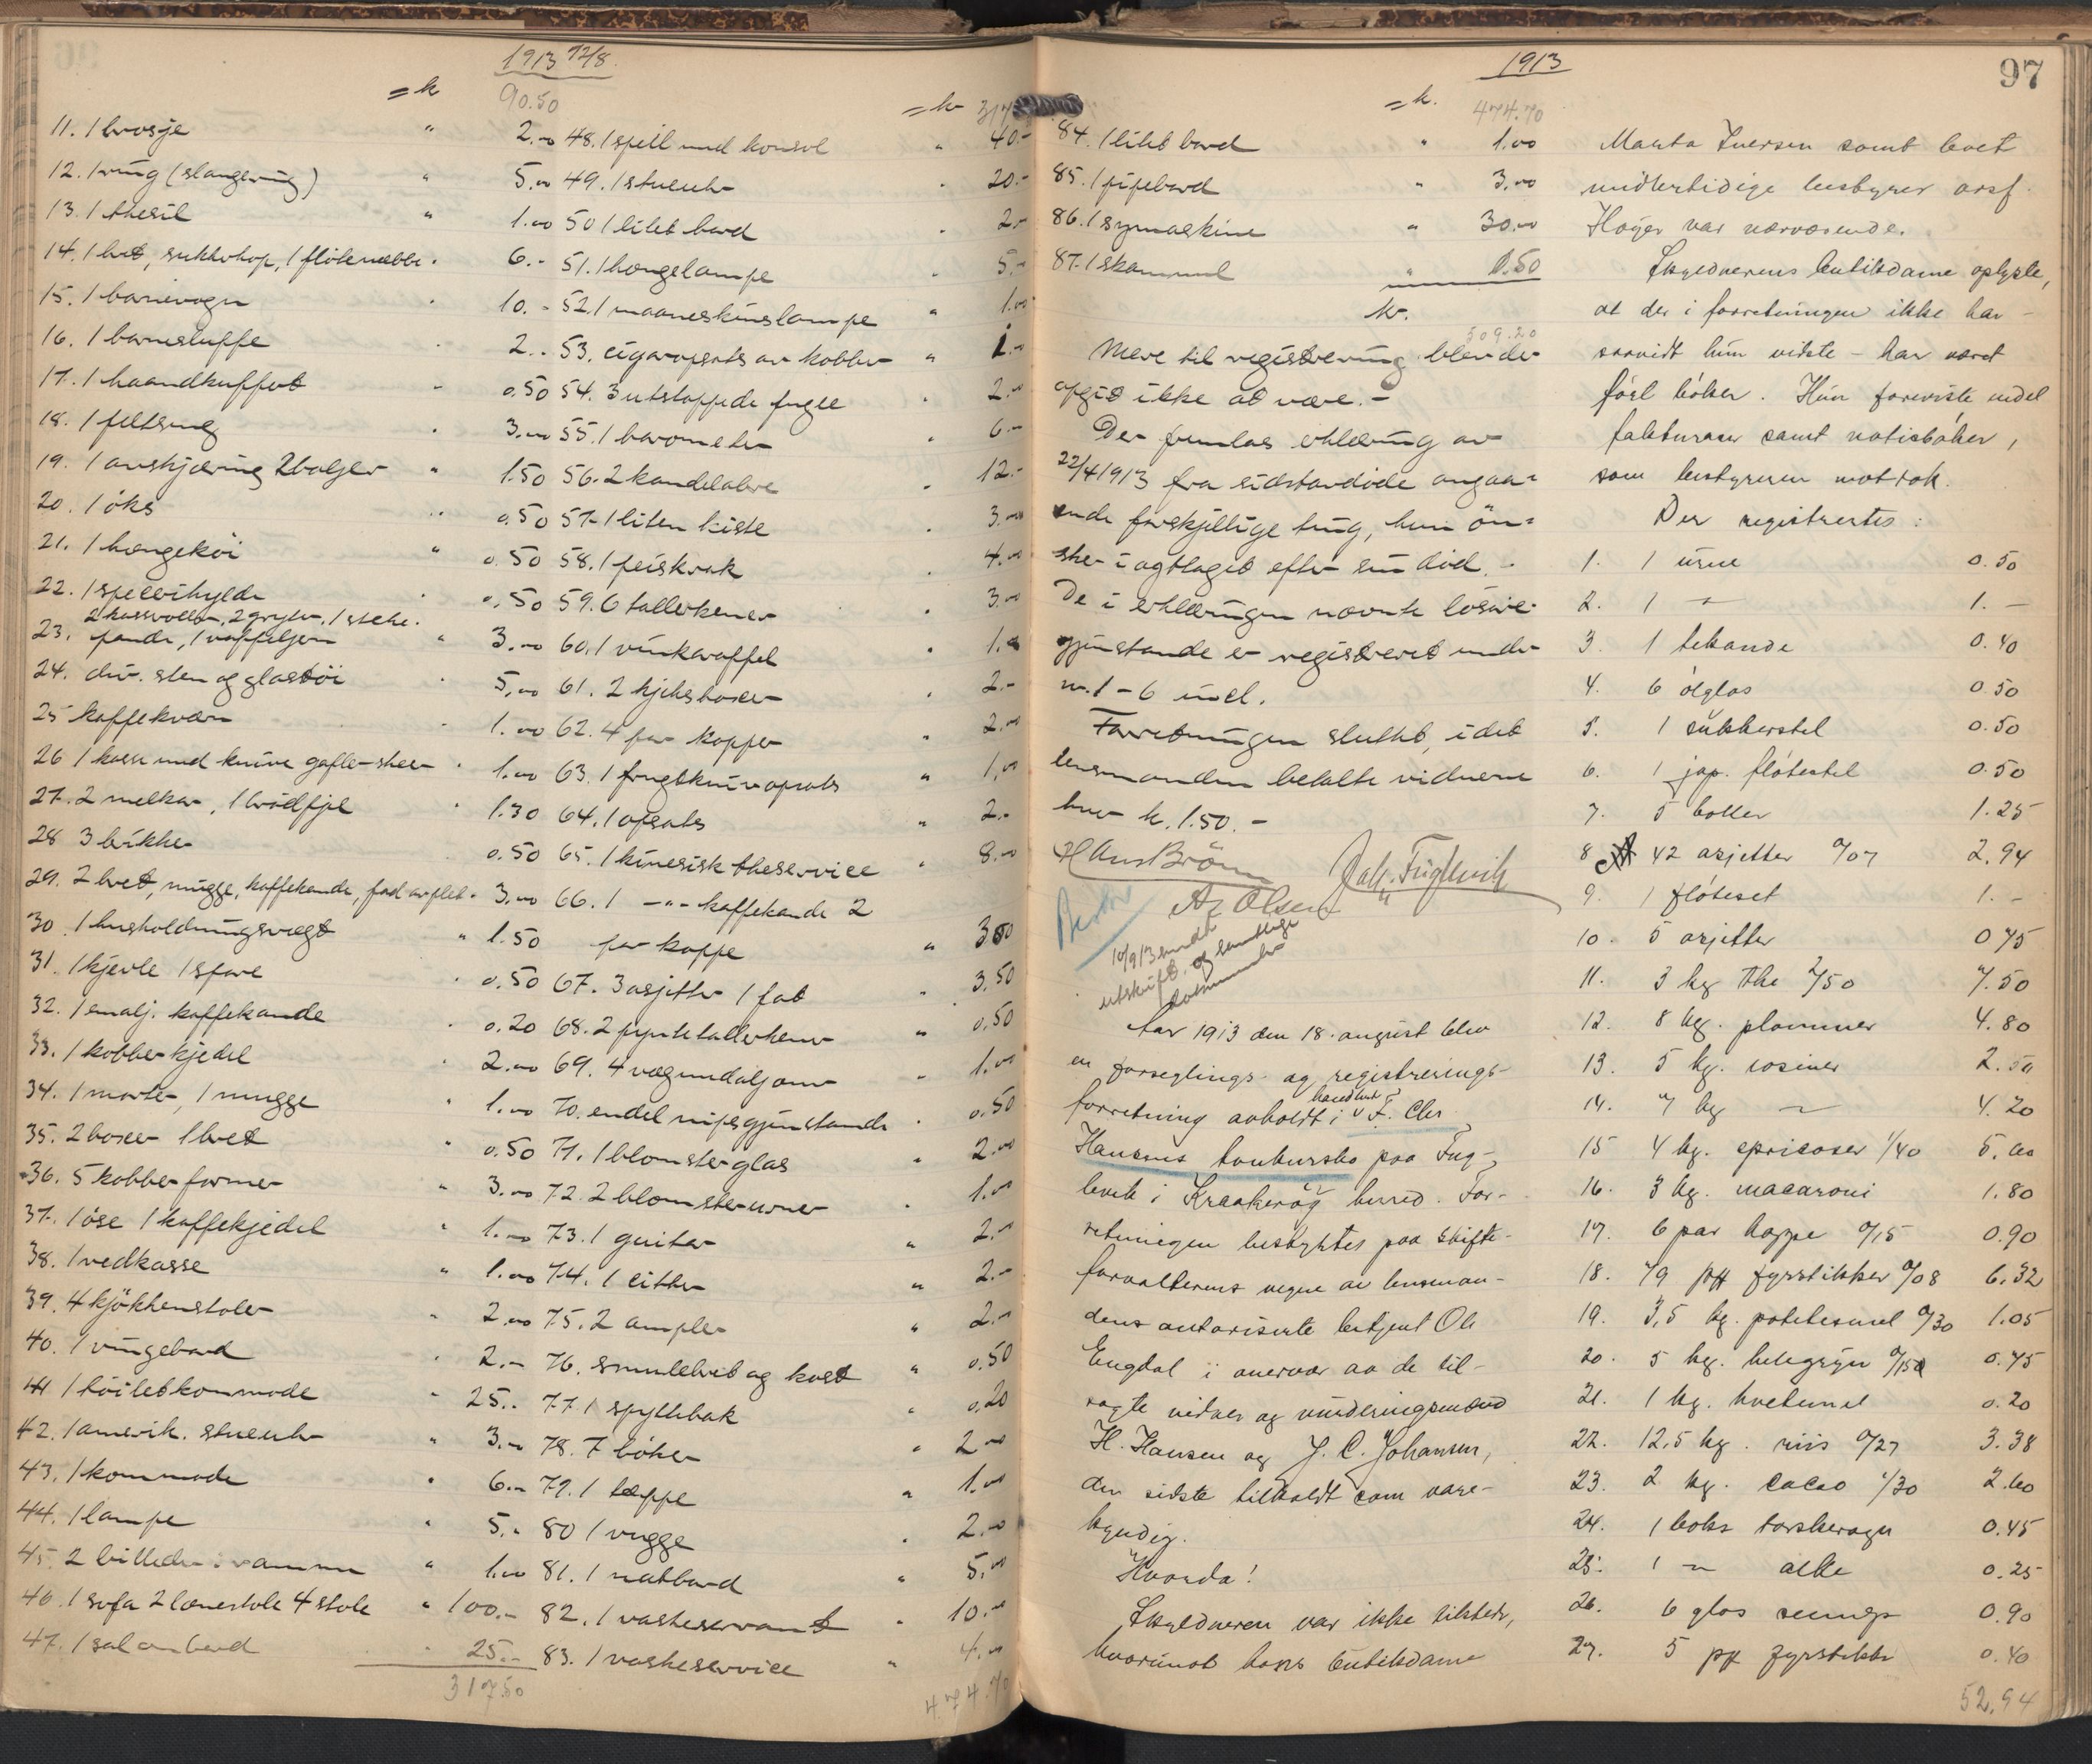 1913 12/8
= kr
90.50
11. 1 brosje " 2.00
12. 1 ring (slangering) " 5.00
13. 1 thesil " 1.00
14. 1 bret, sukkerkop, 1 fløtenebbe " 6.-
15. 1 barnevogn " 10.-
16. 1 barnesluffe " 2..
17. 1 haandkuffert " 0.50
18. 1 filtsrug " 3.00
19. 1 anskjæring 2 baljer " 1.50
20. 1 öks " 0.50
21. 1 hængeköi " 0.50
22. 1 speilhylde " 0.50
2 kasseroller, 2 gryter, 1 steke-
23. pande, 1 vaffeljern " 3.00
24. div. sten og glastöi " 5.00
25 kaffekværn " 1.00
26 1 kasse med knive gafler skeer " 1.00
27. 2 melkar, 1 brödfjel " 1.30
28 3 brikker 0.50
29. 2 bret, mugge, kaffekande, fad av plet " 3.00
30. 1 husholdningsvægt " 1.50
31. 1 kjevle 1 " 0.50
32. 1 emalj. kaffekande " 0.20
33. 1 kobberkjedel " 2.00
34. 1 morter, 1 mugge " 1.00
35. 2 boxer 1 bret " 0.50
36. 5 kobberformer " 3.00
37. 1 öse 1 kaffekjedel " 1.00
38. 1 vedkasse " 1.00
39. 4 kjökkenstoler " 2.00
40. 1 vingebord " 2.-
41 1 töiletkommode " 25..
42. 1 amerik. stueuhr " 3.-
43. 1 kommode " 6.-
44. 1 lampe " 5.-
45. 2 billeder i ramme " 1.00
46. 1 sofa 2 lænestole 4 stole " 100.-
47. 1 salonbord " 25.-
317.50
= kr 317
48. 1 speil med konsol " 40.-
49. 1 stueuhr " 20.-
50 1 litet bord " 2.-
51. 1 hængelampe " 5.-
52. 1 maaneskinslampe " 1.00
53. cigaropsats av kobber " 1.-
54. 3 utstoppede fugle " 2.-
55. 1 barometer " 6.-
56. 2 kandelabre " 12.-
57. 1 liten kiste " 3.00
58. 1 peiskrak " 4.00
59. 6 tallerkener " 3.00
60. 1 vinkaraffel " 1.00
61. 2 kjeksboxer " 2.-
62. 4 par kopper " 2.00
63. 1 frugtknivopsats " 1.00
64. 1 opsats " 2.-
65. 1 kinesisk theservice " 8.00
66. 1 -"- kaffekande 2
par koppe " 3.00
67. 3 asjetter 1 fat " 3.50
68. 2 pyntetallerkener " 0.50
69. 4 vægmedaljonr " 1.00
70. endel nipsgjenstande " 0.50
71. 1 blomsterglas " 2.00
72. 2 blomsterurner " 1.00
73. 1 guitar " 2.-
74. 1 cither " 2.-
75. 2 ampler " 2.-
76. smulebret og kost " 0.50
77. 1 spyttebak " 0.20
78. 7 böker " 2.00
79. 1 tæppe " 1.00
80 1 vugge " 2.00
81. 1 natbord " 5.00
82. 1 vaskeservant " 10.-
83. 1 vaskeservice " 4.00
474.70
1913
97
= kr. 474.70
84. 1 litet bord " 1.00
85. 1 pipebord " 3.00
86. 1 symaskine " 30.00
87. 1 skammel " 0.50
kr. 509.20
Mere til registrering blev der
opgit ikke at være.-
Der fremlas erklæring av
22/4 1913 fra sidstavdöde angaa=
ende forskjellige ting, hun ön=
sker iagttaget efter sin död.-
De i erklæringen nævnte lösöre-
gjenstande er registreret under
nr. 1-6 incl.
Forretningen sluttet, idet
lensmanden betalte vidnerne
hver kr. 1.50.-
Hans Bröm Joh. Fuglevik
A. Olsen
10/9 13 sendt
utskrift og samtlige
dokumenter
Aar 1913 den 18. august blev
en forseglings- og registrerings-
forretning avholdt i handlende F. Chr.
Hansens konkursbo paa Fug-
levik i Kraakeröy herred. For-
retningen bestyrtes paa skifte-
forvalterens vegne av lensman-
dens autoriserte betjent Ole
Engdal i overvær av de til-
sagte vidner og vurderingsmænd
H. Hansen og J. C. Johansen,
den sidste tilkaldt som vare-
kyndig.
Hvorda!
Skyldneren var ikke tilstede,
hvorimot hans butikdame
Marta Iversen samt boet
midlertidige bestyrer orsf.
Höyer var nærværende.
Skyldnerens butikdame oplyste,
at der i forretningen ikke har -
saavidt hun vidste - har været
fört böker. Hun foreviste endel
fakturaer samt notisböker,
som bestyreren mottok.
Der registrertes:
1. 1 urne 0.50
2. 1 " 1.-
3 1 tekande 0.40
4. 6 ölglas 0.50
5. 1 sukkerstel 0.50
6. 1 jap. flötestel 0.50
7. 5 boller 1.25
8 42 asjetter 0/07 2.94
9. 1 flöteset 1.-
10. 5 asjetter 0 75
11. 3 kg the 2/50 7.50
12. 8 kg. plommer 4.80
13. 5 kg. rosiner 2.50
14. 7 kg " 4.20
15 4 kg. apricoser 1/40 5.60
16. 3 kg. macaroni 1.80
17. 6 par koppe 0/15 0.90
18. 79 pk fyrstikker 0/08 6.32
19. 3,5 kg. potetesmel 0/30 1.05
20. 5 kg. helegryn 0/15 0.75
21. 1 kg. hvetemel 0.20
22. 12,5 kg. riis 0/27 3.38
23. 2 kg. cacao 1/30 2.60
24. 1 boks torskerogn 0.45
25. 1 " 0.25
26. 6 glas sennep 0.90
27. 5 pk fyrstikker 0.40
52.94